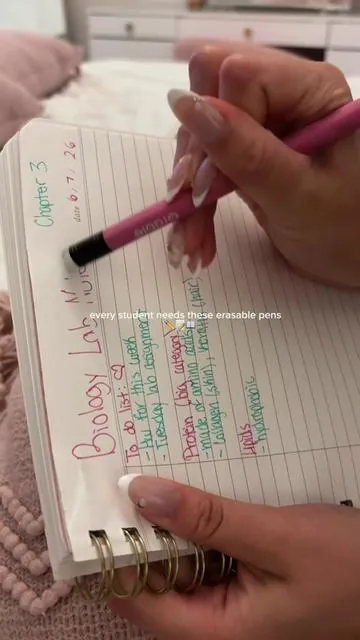 Chapter 3
date 6, 7, 26
Biology Lab
To do list:
- Hw for this week
- Tuesday lab assignment
Protein (big category)
- made of amino acids
- Collagen (skin), keratin (hair)
Lipids
- hydrophobic
every student needs these erasable pens